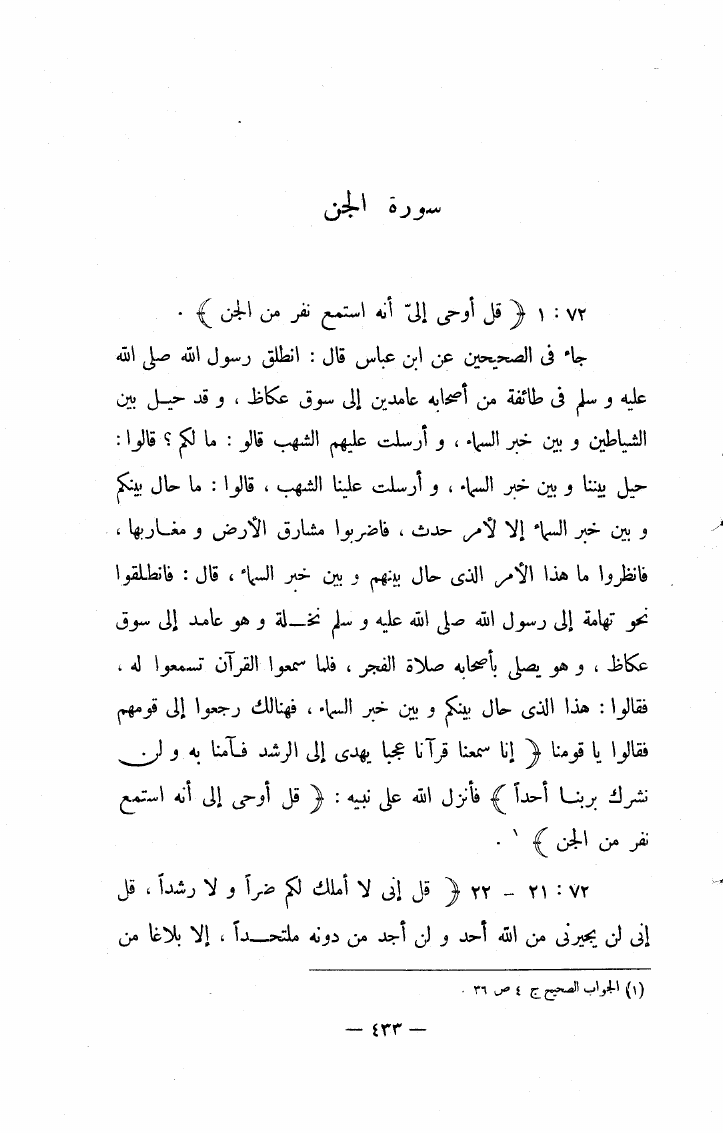 سورة الجن
٧٢ : ١ ﴿ قل أوحى إلىّ أنه استمع نفر من الجن ﴾ .
جاء فى الصحيحين عن ابن عباس قال : انطلق رسول الله صلى الله
عليه و سلم فى طائفة من أصحابه عامدين إلى سوق عكاظ ، و قد حيل بين
الشياطين و بين خبر السماء ، و أرسلت عليهم الشهب قالو : ما لكم ؟ قالوا :
حيل بيننا و بين خبر السماء ، و أرسلت علينا الشهب ، قالوا : ما حال بينكم
و بين خبر السماء إلا لأمر حدث ، فاضربوا مشارق الأرض و مغاربها ،
فانظروا ما هذا الأمر الذى حال بينهم و بين خبر السماء ، قال : فانطلقوا
نحو تهامة إلى رسول الله صلى الله عليه و سلم نخلة و هو عامد إلى سوق
عكاظ ، و هو يصلى بأصحابه صلاة الفجر ، فلما سمعوا القرآن تسمعوا له ،
فقالوا : هذا الذى حال بينكم و بين خبر السماء ، فهنالك رجعوا إلى قومهم
فقالوا يا قومنا ﴿ إنا سمعنا قرآنا عجبا يهدى إلى الرشد فآمنا به و لن
نشرك بربنا أحداً ﴾ فأنزل الله على نبيه : ﴿ قل أوحى إلى أنه استمع
نفر من الجن ﴾ ١ .
٧٢ : ٢١ – ٢٢ ﴿ قل إنى لا أملك لكم ضراً و لا رشداً ، قل
إنى لن يجيرنى من الله أحد و لن أجد من دونه ملتحداً ، إلا بلاغا من
(١) الجواب الصحيح ج ٤ ص ٣٦ .
— ٤٣٣ —